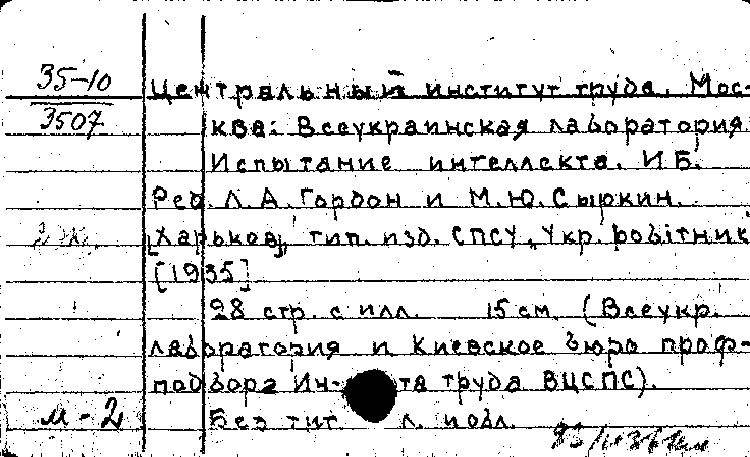 35-10
3507
Центральный институт труда. Мос-
ква. Всеукраинская лаборатория.
Испытание интеллекта. И Б.
Ред. Л. А. Гордон и М. Ю. Сыркин.
[Харьков], тип. изд. СПСУ „Укр. робітник
[1935]
28 стр. с илл. 15 см. (Всеукр.
лаборатория и Киевское бюро проф-
подбора Ин- та труда ВЦСПС).
м-2
Без тит л. и обл.